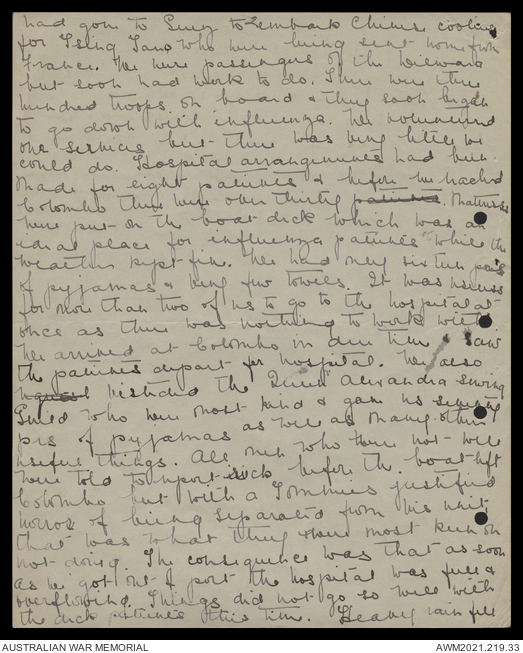 had gone to Suez to embark Chinese coolies
for Tsing Tau who were being sent home from
France. We were passengers on the
but soon had work to do. There were three
hundred troops on board & they soon began
to go down with influenza. We volunteered
our services but there was very little we
could do. Hospital arrangements had been
made for eight patients & before we reached
Colombo there were over thirty patients. Mattresses
were put on the boat deck which was an
ideal place for influenza patients while the
weather kept fine. We had only sixteen pairs
of pyjamas & very few towels. It was useless
for more than two of us to go to the hospital at
once as there was nothing to work with.
We arrived at Colombo in due time & saw
the patients depart for hospital. We also
visited the Queen Alexandra sewing
Guild who were most kind & gave us seventy
prs of pyjamas as well as many other
useful things. All men who were not well
were told to report sick before the boat left
Colombo but with a Tommies justified
horror of being separated from his unit
that was what they were most keen on
not doing. The consequence was that as soon
as we got out of port the hospital was full &
overflowing. Things did not go so well with
the deck patients this time. Heavy rain fell
AUSTRALIAN WAR MEMORIAL
AWM2021.219.33